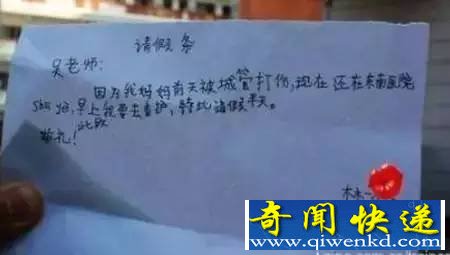 请假条
吴老师:
因为我妈妈前天被城管打伤,现在还在东南医院
5h 抢,早上我要去看护,特此请假半天。
此致
敬礼!
林
奇闻快递
www.qiwenkd.com